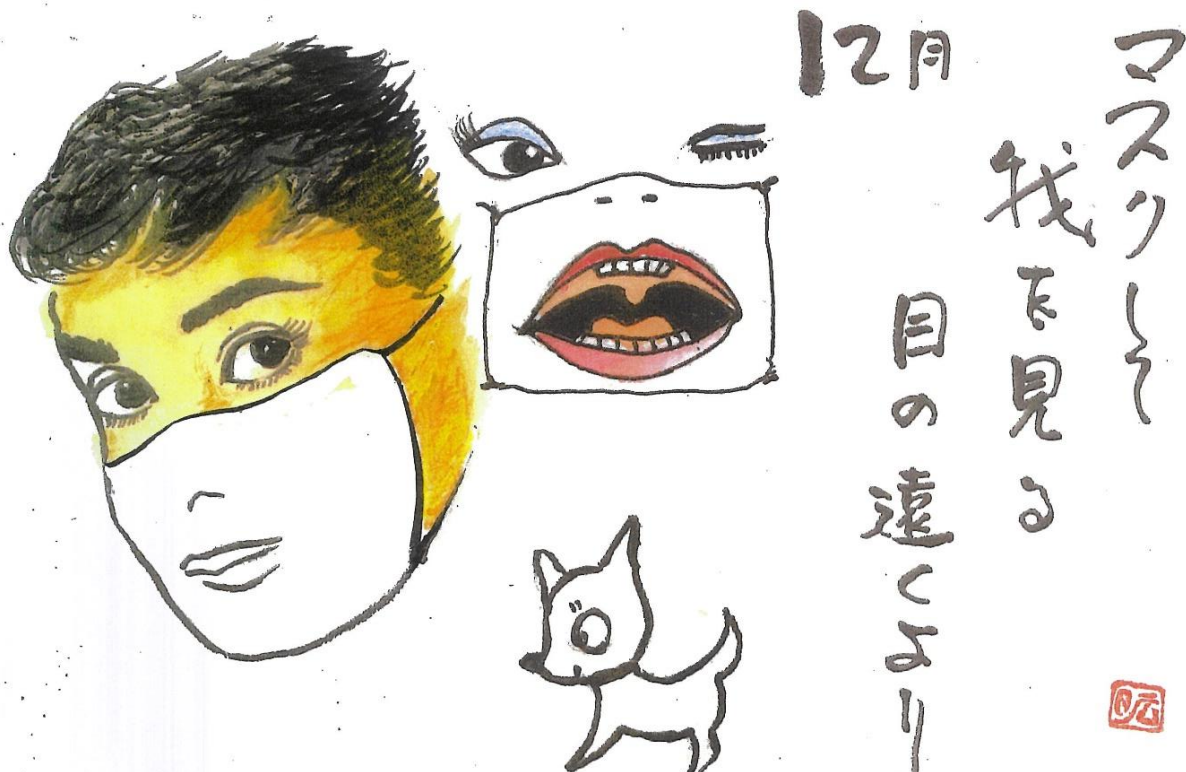 マスクして
我を見る
目の遠くより
12月